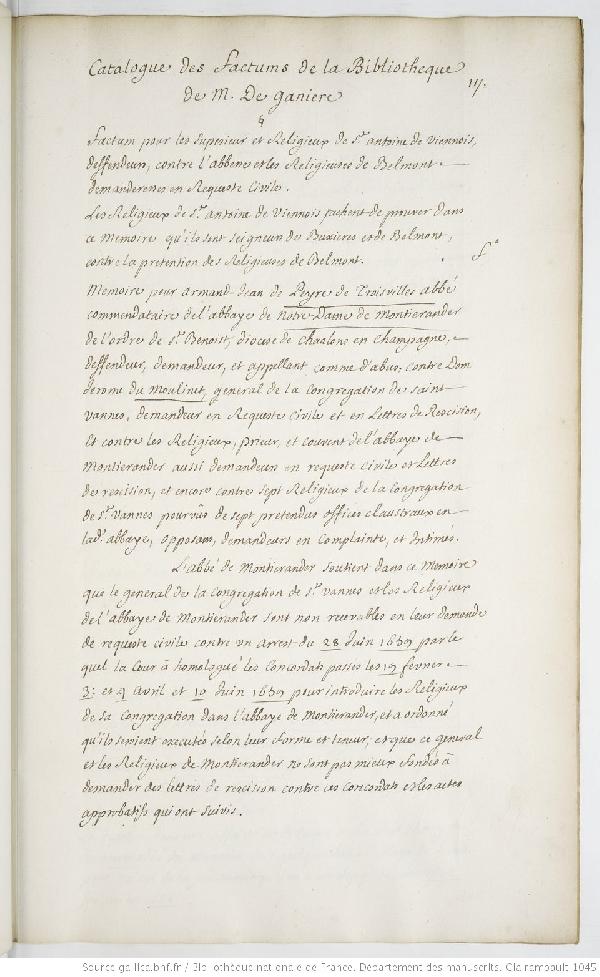 Catalogue des factums de la Bibliotheque
de M. De ganiere
Factum pour les superieur et Religieux de St. antoine de Viennois,
deffendeurs, contre l'abbesse et les Religieuses de Belmont
demanderesses en Requeste Civile.
Les Religieux de St. antoine de Viennois tachent de prouver dans
ce Memoire qu'ils sont seigneurs des Buxieres et de Belmont,
contre la pretention des Religieuses de Belmont.
fo
Memoire pour armand Jean de Peyre de Troisvilles abbé
commendataire de l'abbaye de Notre-Dame de Montierander
de l'ordre de St. Benoist, diocese de Chaalons en Champagne,
deffendeur, demandeur, et appellant comme d'abus; contre Dom
Jerome du Moulinet, general de la Congregation de saint
Vannes, demandeur en Requeste Civile et en Lettres de Rescision,
Et contre les Religieux, prieur, et couvent de l'abbaye de
Montierander aussi demandeurs en requeste Civile et Lettres
de rescision, et encore contre sept Religieux de la Congregation
de St. Vannes pourvûs de sept pretendus offices claustraux en
lad. abbaye, opposans, demandeurs en Complainte, et Intimés.
L'abbé de Montierander soutient dans ce Memoire
que le general de la Congregation de St. Vannes et les Religieux
de l'abbaye de Montierander sont non recevables en leur demande
de requeste civile contre un arrest du 28 Juin 1659 par le
quel la Cour à homologué les Concordats passés les 19 fevrier
3: et 9 Avril et 10 Juin 1659 pour introduire les Religieux
de sa Congregation dans l'abbaye de Montierander, et a ordonné
qu'ils seroient executés selon leur forme et teneur, et que ce general
et les Religieux de Montierander ne sont pas mieux fondés à
demander des lettres de rescision contre ces Concordats et les actes
approbatifs qui ont suivis.
Source gallica.bnf.fr / Bibliothèque nationale de France. Département des manuscrits. Clairambault 1045